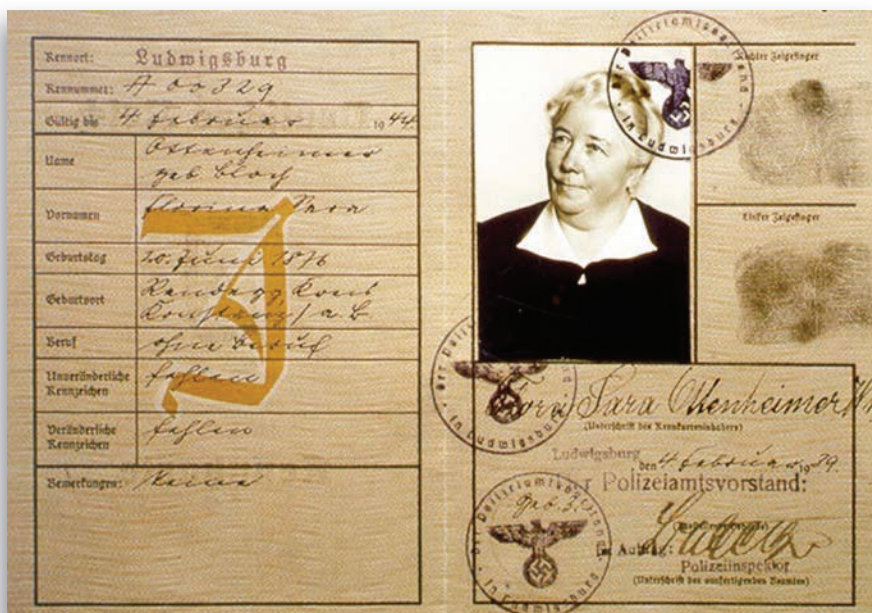 Kennort: Ludwigsburg
Kennummer: A 00329
Gültig bis 4 Februar 1944
Name Ottenheimer
geb Bloch
Vornamen Sara
J
Geburtstag 20. Juni 1876
Geburtsort Randegg Kons
Konstanz / a. B.
Beruf ohne Beruf
Unveränderliche
Kennzeichen fehlen
Veränderliche
Kennzeichen fehlen
Bemerkungen: Keine
Rechter Zeigefinger
Linker Zeigefinger
in Ludwigsburg
in Ludwigsburg
Flora Sara Ottenheimer
(Unterschrift des Kennkarteninhabers)
Ludwigsburg den 4 Februar 1939.
Der Polizeiamtsvorstand:
Geb. 3.
in Ludwigsburg
Im Auftrag:
Polizeiinspektor
(Unterschrift des ausfertigenden Beamten)